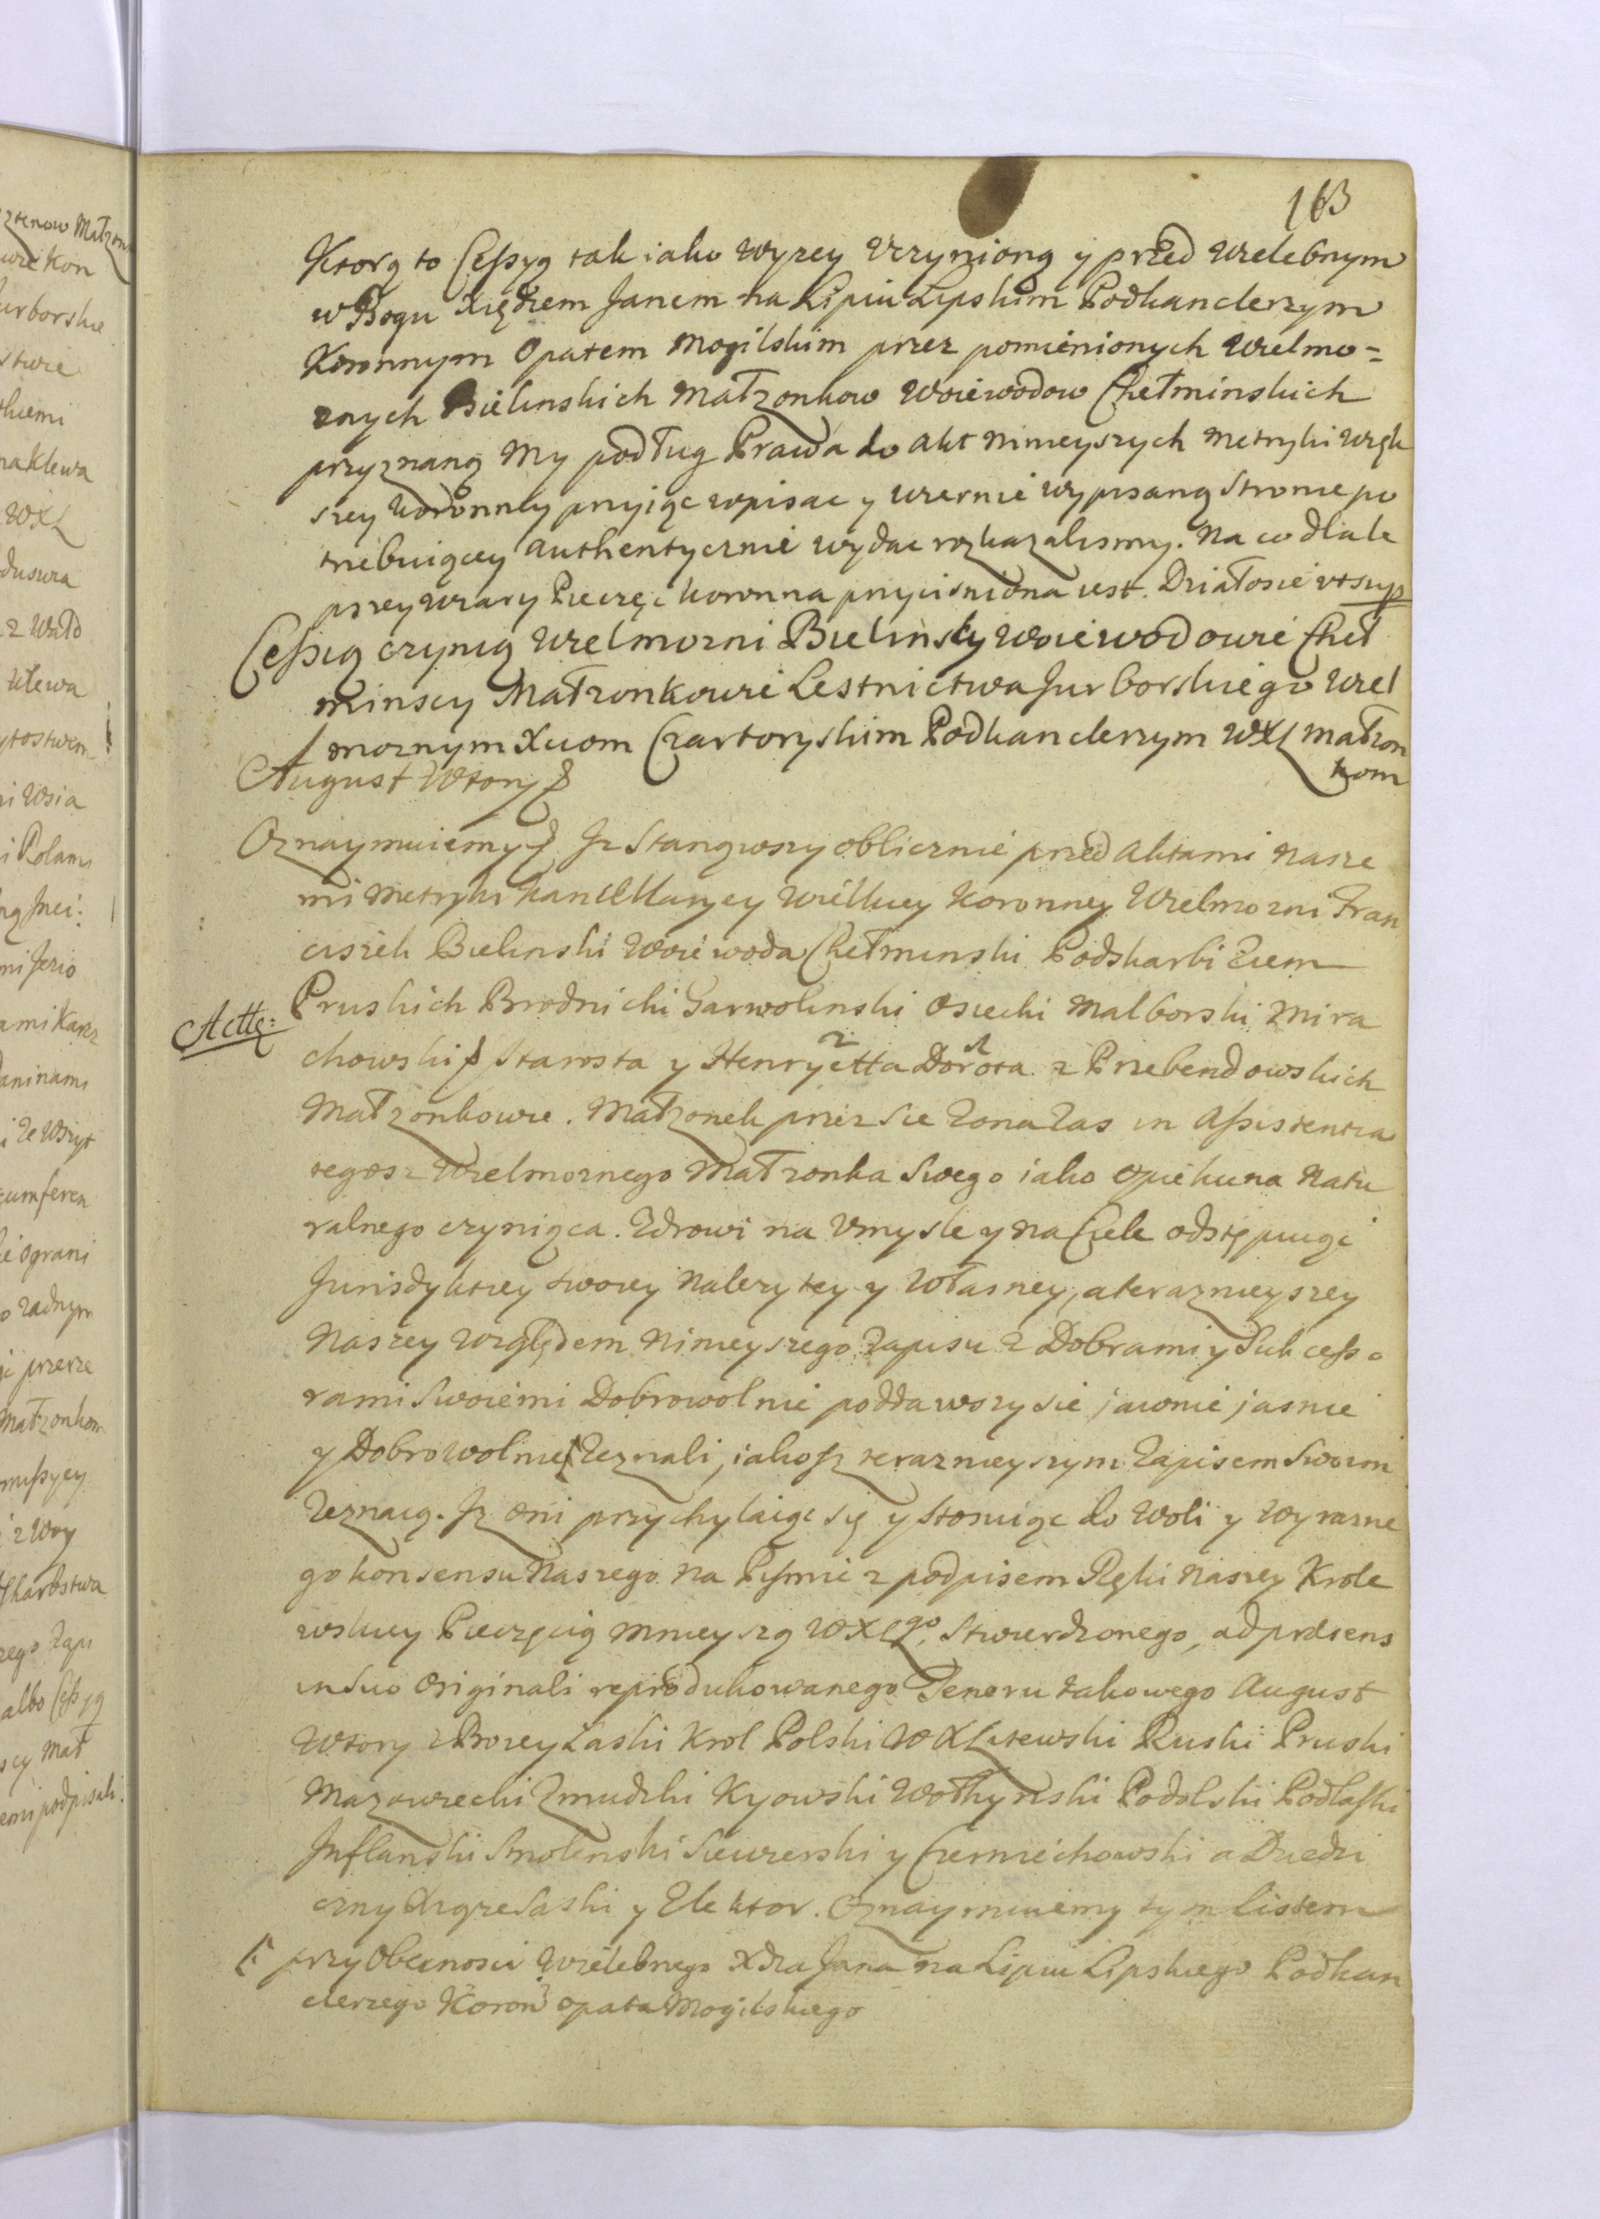 163
Ktorą to Cessyą tak iako wyzey vczynioną y przed Wielebnym
w Bogu Xiędzem Janem na Lipiu Lipskim Podkanclerzym
Koronnym Opatem Mogilskim przez pomienionych Wielmo=
znych Bielinskich Małzonkow Woiewodow Chełminskich
przyznaną My podług Prawa do Akt ninieyszych Metryki Więk
szey Koronney przyiąc wpisac y wiernie wypisaną Stronie po
trzebuiącey authentycznie wydac rozkazalismy. Na co dla le
pszey wiary Pieczęc Koronna przycisniona iest. Działosie vt sup
Cessią czynią Wielmozni Bielinsky Woiewodowie Cheł
minscy Małzonkowie Lesnictwa Jurborskiego Wiel
moznym Xciom Czartoryskim Podkanclerzym WXL Małzon
kom
August Wtory
Oznaymuiemy Jz Stanąwszy oblicznie przed Aktami Nasze
mi Metryki Kancellaryey Wielkiey Koronney Wielmozni Fran
ciszek Bielinski Woiewoda Chełminski Podskarbi Ziem
Pruskich Brodnicki Garwolinski Osiecki Malborski Mira
chowski Starosta y Henryetta Dorota z Przebendowskich
Małzonkowie. Małzonek przez sie Zona Zas in Assistentia
tegosz Wielmoznego Małzonka Swego iako Opiekuna Natu
ralnego czyniąca. Zdrowi na Vmysle y na Ciele odstępuiąc
Jurisdyktiey swoiey Nalezytey y Własney, a teraznieyszey
Naszey względem Ninieyszego Zapisu z Dobrami y Sukcesso
rami Swoiemi Dobrowolnie poddawszy sie jawnie jasnie
y Dobrowolnie Zeznali, iakosz teraznieyszym Zapisem Swoim
Zeznaią. Jz Oni przychylaiąc się y stosuiąc do Woli y Wyrazne
go konsensu Naszego na Pismie z podpisem Ręki Naszey Krole
wskiey Pieczęcią Mnieyszą WXLgo Stwierdzonego, ad praesens
in Suo Originali reprodukowanego Tenoru takowego August
Wtory z Bozey Łaski Krol Polski WXLitewski Ruski Pruski
Mazowiecki Zmudzki Kyowski Wołhynski Podolski Podlaski
Jnflantski Smolenski Siewierski y Czerniechowski a Dziedzi
czny Xiąze Saski y Elektor. Oznaymuiemy tym listem
przy Obecnosci Wielebnego Xdza Jana na Lipiu Lipskiego Podkan
clerzego Koron Opata Mogilskiego